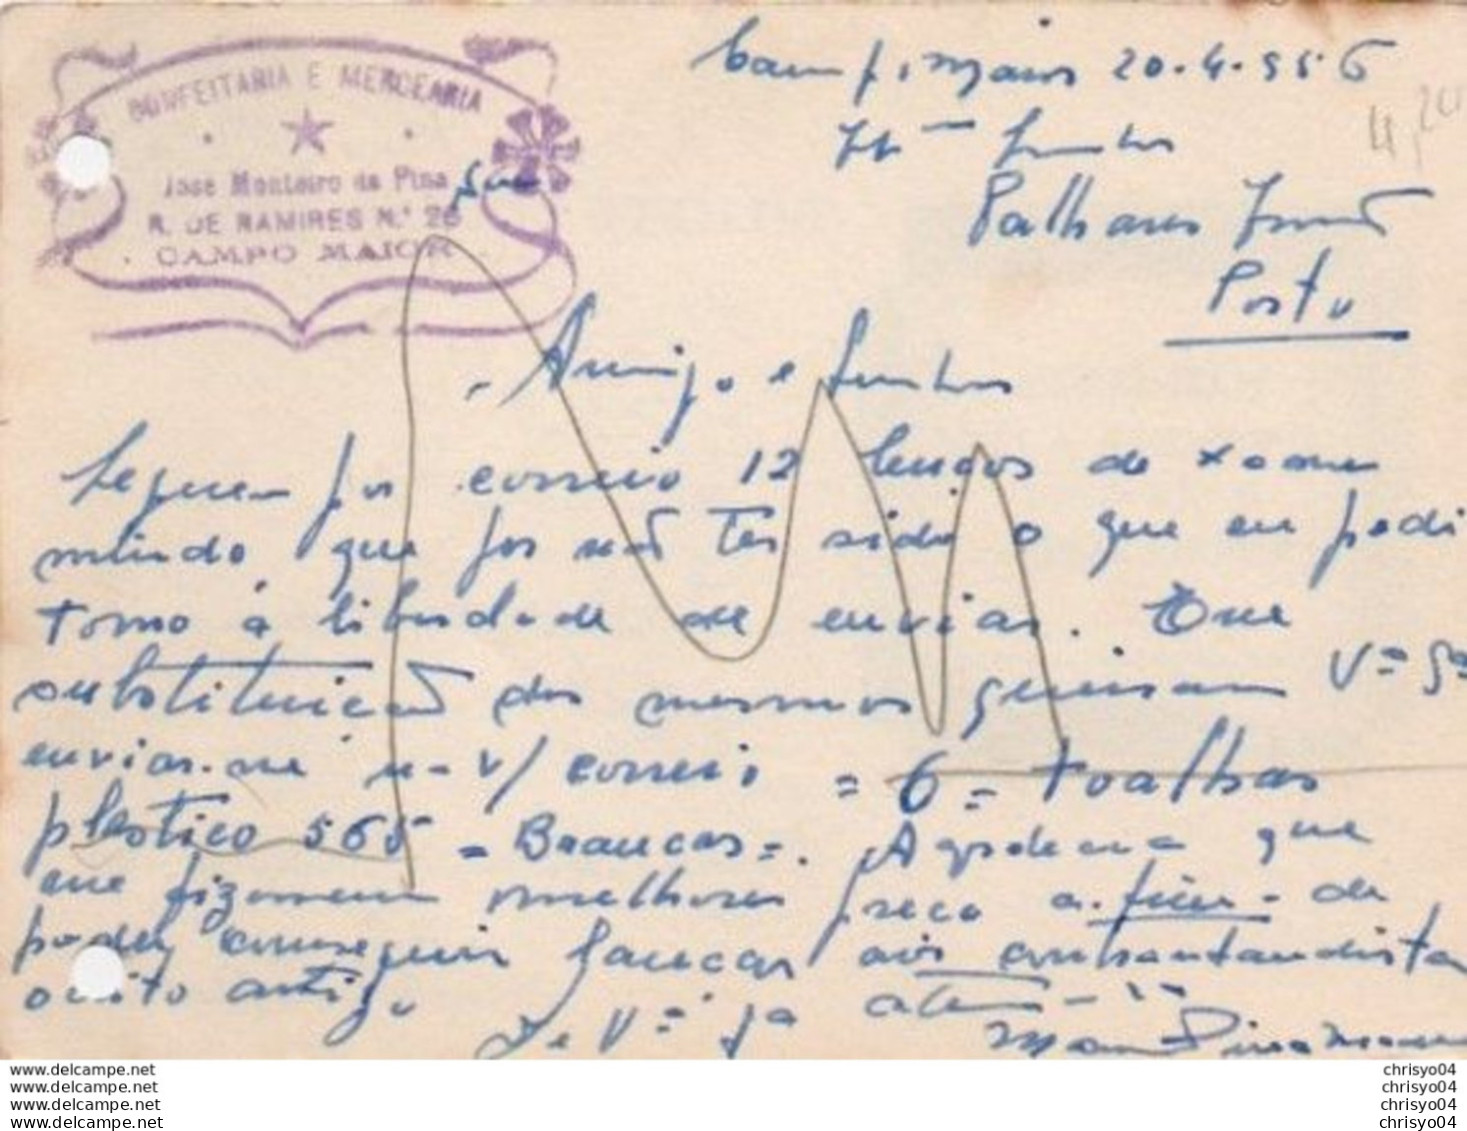 CONFEITARIA E MERCEARIA
José Monteiro da Pina
R. DE RAMIRES N.º 26
CAMPO MAIOR
Campo Maior 20-4-956
4,20
Palhares Irmão
Porto
Amigo e Senhor
Seguem por correio 12 lenços de
que por não ter sido o que eu pedi
tomo á liberdade de enviar. Em
substituição dos mesmos queiram Vªs Sªs
enviar-me v/ correio = 6 = toalhas
plástico 565 = Brancas =. Agradecia que
me fizessem melhores preço a fim de
poder conseguir lançar aos
artigo
De Vª Sª
chrisyo04
chrisyo04
chrisyo04
chrisyo04
www.delcampe.net
www.delcampe.net
www.delcampe.net
www.delcampe.net